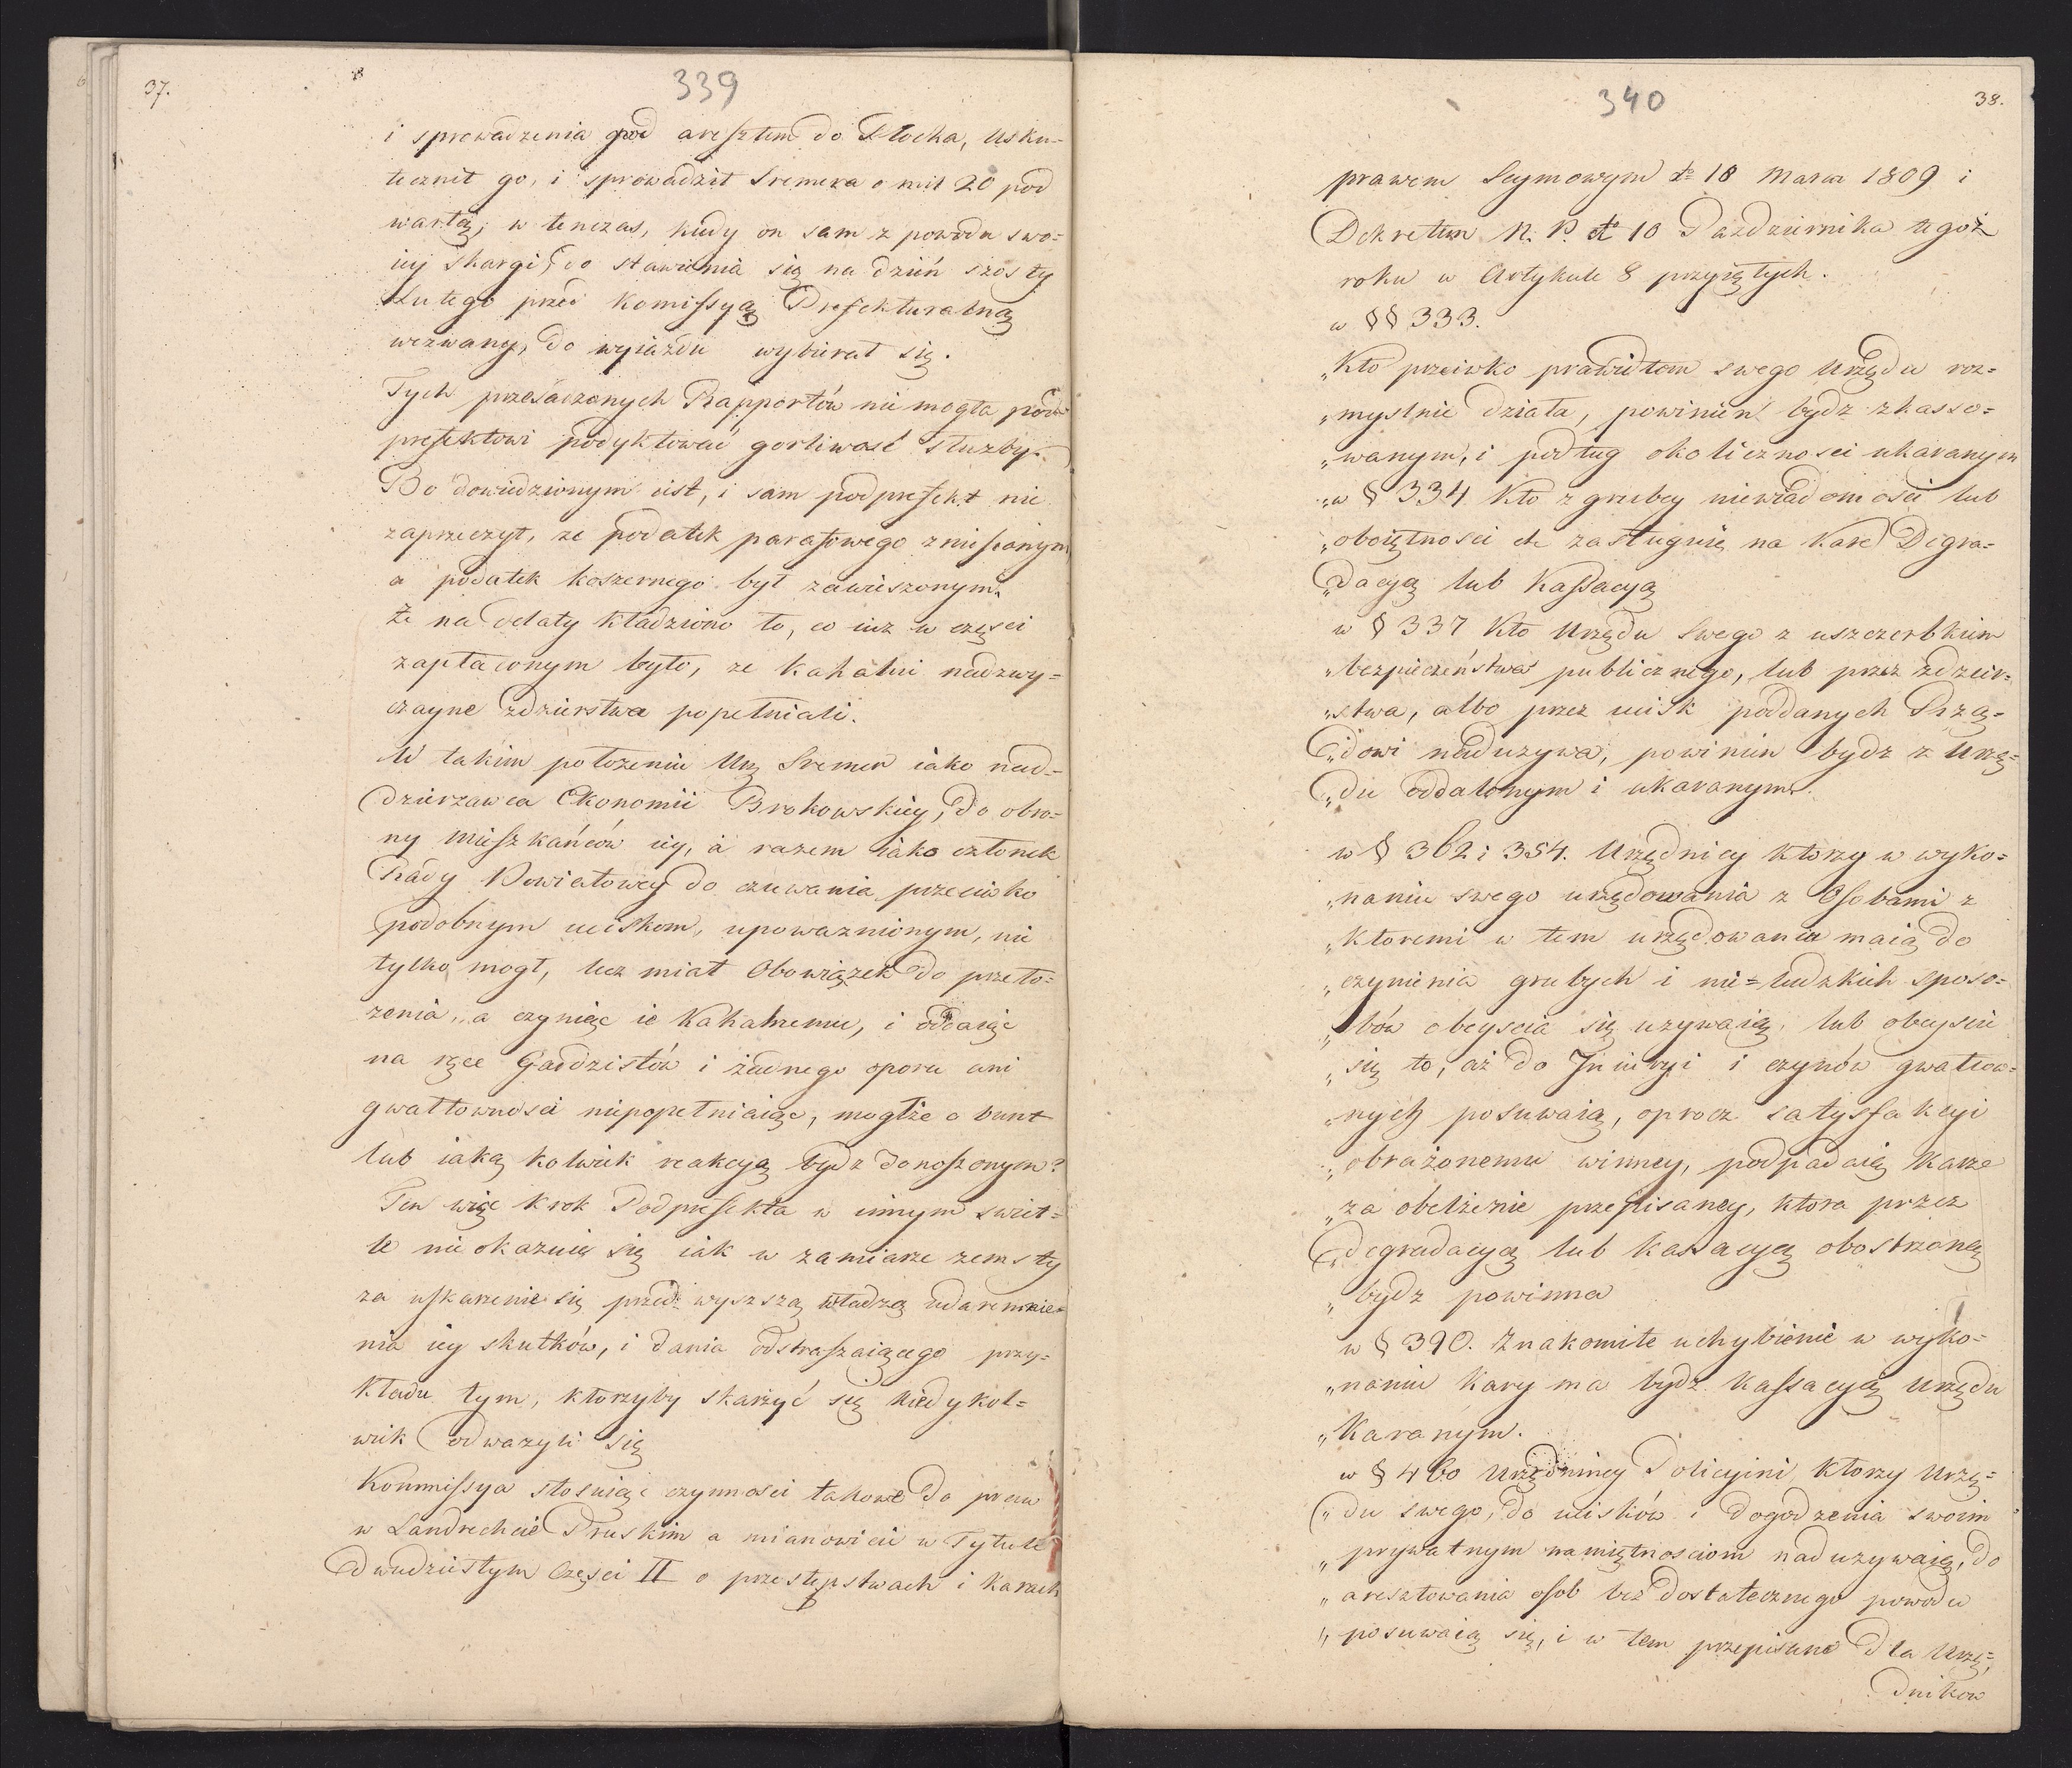 37.
339
i sprowadzenia pod aresztem do Płocka, Usku-
tecznił go, i sprowadził Sremera o mil 20 pod
wartą; w tenczas, kiedy on sam z powodu swo=
iey Skargi, do stawienia się na dzień szosty
Lutego przed Komissyą Prefekturalną
wezwany, do wyiazdu wybierał się.
Tych przesadzonych Rapportów nie mogła pod=
prefektowi podyktować gorliwość służby.
Bo dowiedzionym iest, i sam podprefekt nie
zaprzeczył, ze podatek parafowego zniesionym
a podatek koszernego był zawieszonym.
Że na Retaty kładziono to, co iuz w częsci
zapłaconym było, ze Kahalni nadzwy=
czayne zdzierstwa popełniali.
W takim położeniu Ur Sremer iako nad=
dzierzawca Ekonomii Brokowskiey, do obro=
ny Mieszkańców iey, a razem iako członek
Rady Powiatowey do czuwania przeciwko
podobnym uciskom, upowaznionym, nie
tylko mogł, lecz miał Obowiązek do przeło=
zenia, a czyniąc ie Kahalnemu, i oddaiąc
na ręce Gardzistów i żadnego oporu ani
gwałtownosci niepopełniaiąc, mogłże o bunt
lub iaką kolwiek reakcyą bydz donoszonym?
Ten więc krok Podprefekta w innym swiet=
le nieokazuie się iak w zamiarze zemsty
za uskarzenie się przed wyszszą władzą udaremnie=
nia iey skutków, i dania odstraszaiącego przy=
kładu tym, ktorzyby skarżyć się kiedykol=
wiek odwazyli się
Kommissya stosuiąc czynnosci takowe do praw
w Landrechcie Pruskim a mianowicie w Tytule
dwudziestym Częsci II o przestępstwach i Karach
340
38.
prawem Seymowym do 18 Marca 1809 i
Dekretem N. P. do 10 Pazdziernika tegoż
roku w Artykule 8 przyiętych.
w §§ 333.
„Kto przeciwko prawidłom swego Urzędu roz=
„myslnie działa, powinien bydz zkasso=
„wanym, i podług okolicznosci ukaranym
„w § 334 Kto z grubey niewiadomosci lub
„oboiętnosci etc zasługuie na Karę Degra=
„dacyą lub Kassacyą
w § 337 Kto Urzędu Swego z uszczerbkiem
„bezpieczeństwa publicznego, lub przez zdzier=
„stwa, albo przez ucisk poddanych Rzą=
„dowi naduzywa, powinien bydz z Urzę=
„du oddalonym i ukaranym.
w § 362 i 354. Urzędnicy ktorzy w wyko=
„naniu swego urzędowania z Osobami z
„ktoremi w tem urzędowaniu maią do
„czynienia grubych i nie=ludzkich sposo=
„bów obeyscia się uzywaią, lub obeyscie
„się to, aż do Iniuryi i czynów gwałtow=
„nych posuwaią, oprocz satysfakcyi
„obrażonemu winney, podpadaią Karze
„za obelżenie przepisaney, ktora przez
„degradacyą lub kassacyą obostrzoną
„bydz powinna
w § 390. Znakomite uchybienie w wyko=
„naniu Kary ma bydz kassacyą Urzędu
„Karanym.
w § 460 Urzędnicy Policyini, Ktorzy Urzę=
„du swego, do ucisków i dogodzenia swoim
„prywatnym namiętnosciom naduzywaią, do
„aresztowania osob bez dostatecznego powodu
„posuwaią się, i w tem przepisane dla Urzę=
dników